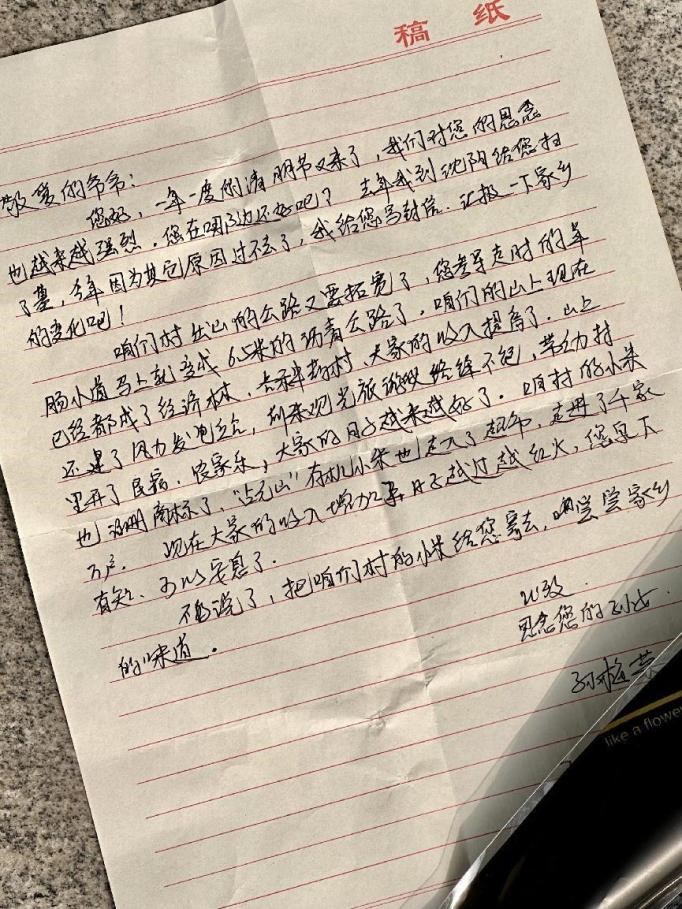 稿 纸
敬爱的爷爷：
您好，一年一度的清明节又来了，我们对您的思念
也越来越强烈，您在那边还好吧？去年我到沈阳给您扫
了墓，今年因为其它原因过不去了，我给您写封信，汇报一下家乡
的变化吧！
咱们村出山的公路又要拓宽了，您当年走时的羊
肠小道马上就变成6.5米的沥青公路了，咱们的山上现在
已经都成了经济林，大家的收入提高了，山上
还建了风力发电站，到来观光旅游的络绎不绝，带动村
里开了民宿、农家乐，大家的日子越来越好了。咱村的小米
也注册商标了，有机小米也走入了超市，走进了千家
万户。现在大家的收入增加了，日子越过越红火，您泉下
有知、可以安息了。
不多说了，把咱们村的小米给您寄去，尝尝家乡
的味道。
此致
思念您的
like a flower